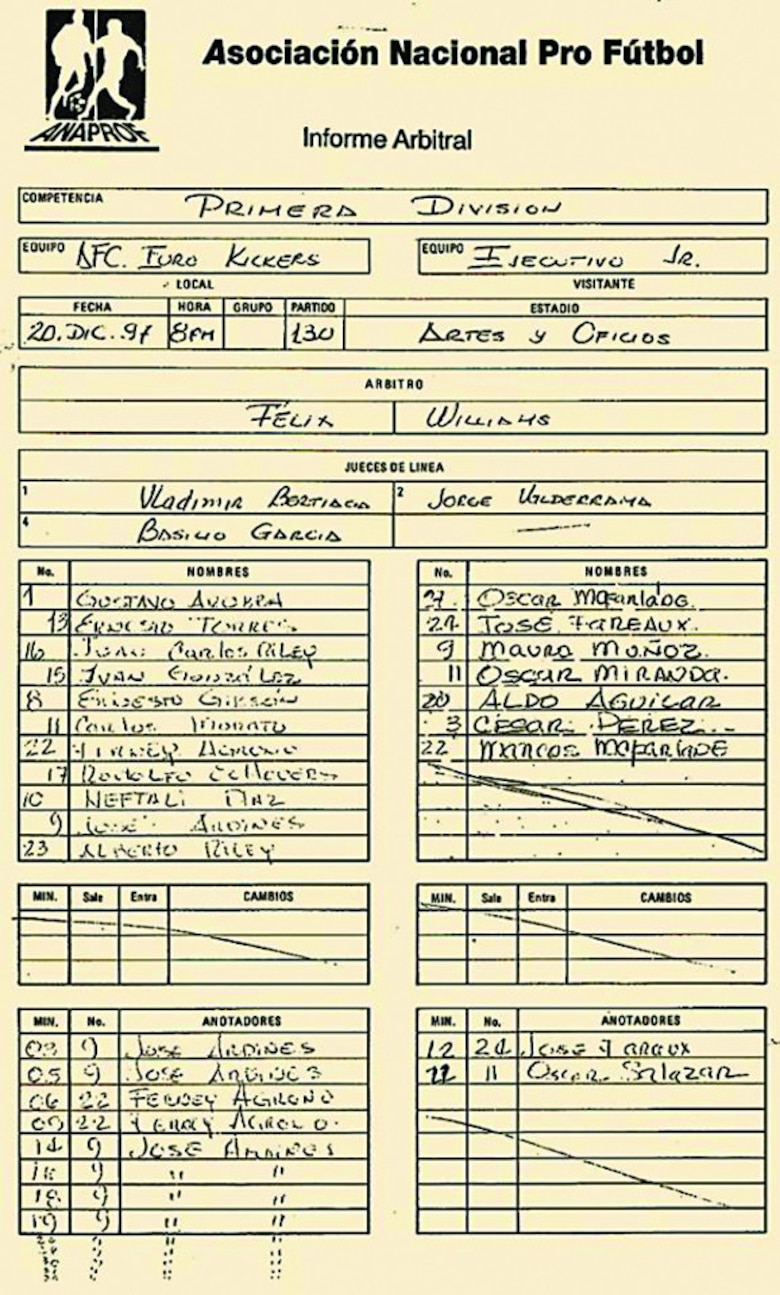 ANAPROF
Asociación Nacional Pro Fútbol
Informe Arbitral
COMPETENCIA PRIMERA DIVISION
EQUIPO AFC. EURO KICKERS
EQUIPO EJECUTIVO JR.
LOCAL
VISITANTE
FECHA HORA GRUPO PARTIDO ESTADIO
20.DIC.97 8PM 130 ARTES y OFICIOS
ARBITRO
FÉLIX WILLIAMS
JUECES DE LINEA
1 Vladimir 2 JORGE VALDERRAMA
4 BASILIO GARCIA
No. NOMBRES
1 GUSTAVO
13 ERNESTO TORRES
16 JUAN Carlos RILEY
15 JUAN GONZÁLEZ
8 ERNESTO
11 Carlos
22
17 RODOLFO
10 NEFTALI DIAZ
9 JOSE ARDINES
23 ALBERTO RILEY
No. NOMBRES
OSCAR McFarlade.
24 JOSÉ FAREAUX.
9 MAURO MUÑOZ.
11 OSCUR MIRANDA.
20 ALDO AGUILAR
3 CÉSAR PÉREZ
22 MARCOS McFarlade
MIN. Sale Entra CAMBIOS
MIN. Sale Entra CAMBIOS
MIN. No. ANOTADORES
03 9 JOSE ARDINES
05 9 JOSE ARDINES
06 22 FERNEY AGRONO
09 22
14 9 JOSE ARDINES
9 " "
18 9 " "
19 9 " "
MIN. No. ANOTADORES
12 24 JOSE
11 OSCAR SALAZAR